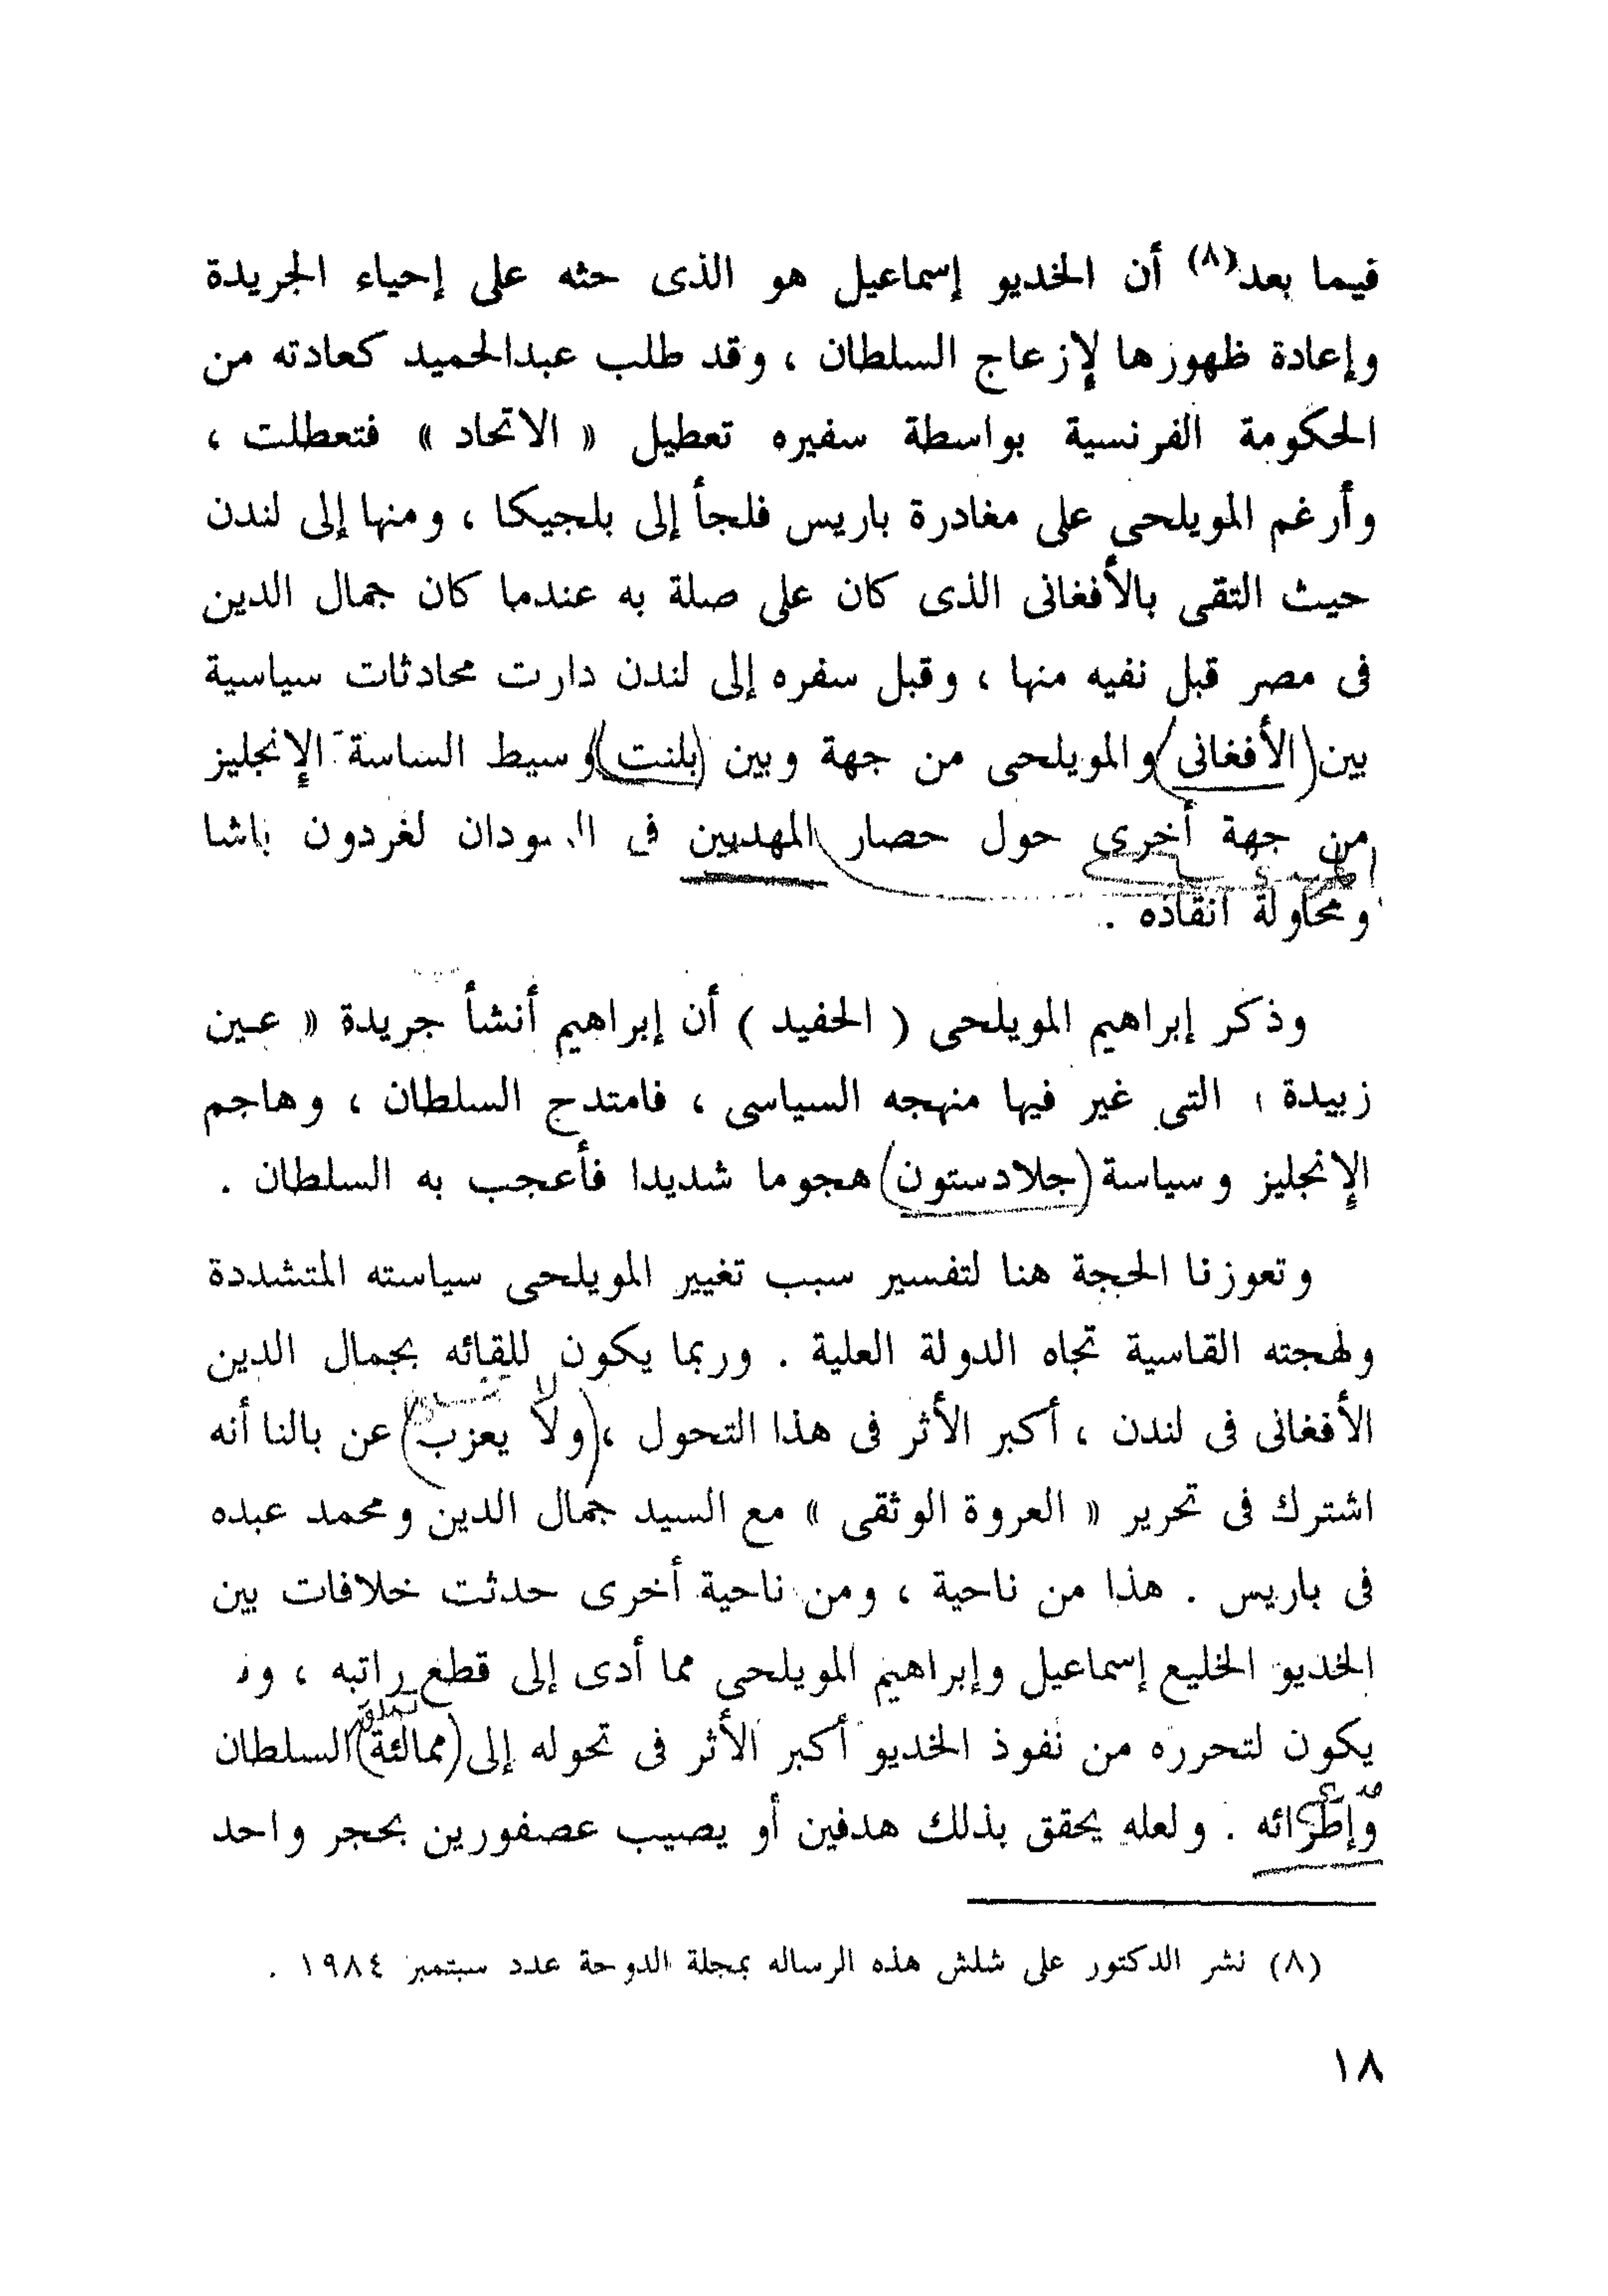 فيما بعد(٨) أن الخديو إسماعيل هو الذى حثه على إحياء الجريدة
وإعادة ظهورها لإزعاج السلطان ، وقد طلب عبدالحميد كعادته من
الحكومة الفرنسية بواسطة سفيره تعطيل « الاتحاد » فتعطلت ،
وأرغم المويلحى على مغادرة باريس فلجأ إلى بلجيكا ، ومنها إلى لندن
حيث التقى بالأفغانى الذى كان على صلة به عندما كان جمال الدين
فى مصر قبل نفيه منها ، وقبل سفره إلى لندن دارت محادثات سياسية
بين (الأفغانى) والمويلحى من جهة وبين (بلنت) وسيط الساسة الإنجليز
من جهة أخرى حول حصار المهديين فى السودان لغردون باشا
ومحاولة انقاذه .
وذكر إبراهيم المويلحى ( الحفيد ) أن إبراهيم أنشأ جريدة « عين
زبيدة » التى غير فيها منهجه السياسى ، فامتدح السلطان ، وهاجم
الإنجليز وسياسة (جلادستون) هجوما شديدا فأعجب به السلطان .
وتعوزنا الحجة هنا لتفسير سبب تغيير المويلحى سياسته المتشددة
ولهجته القاسية تجاه الدولة العلية . وربما يكون للقائه بجمال الدين
الأفغانى فى لندن ، أكبر الأثر فى هذا التحول ، (ولا يعزب) عن بالنا أنه
اشترك فى تحرير « العروة الوثقى » مع السيد جمال الدين ومحمد عبده
فى باريس . هذا من ناحية ، ومن ناحية أخرى حدثت خلافات بين
الخديو الخليع إسماعيل وإبراهيم المويلحى مما أدى إلى قطع راتبه ،
يكون لتحرره من نفوذ الخديو أكبر الأثر فى تحوله إلى (ممالئة) السلطان
وإطرائه . ولعله يحقق بذلك هدفين أو يصيب عصفورين بحجر واحد
(٨) نشر الدكتور على شلش هذه الرساله بمجلة الدوحة عدد سبتمبر ١٩٨٤ .
١٨